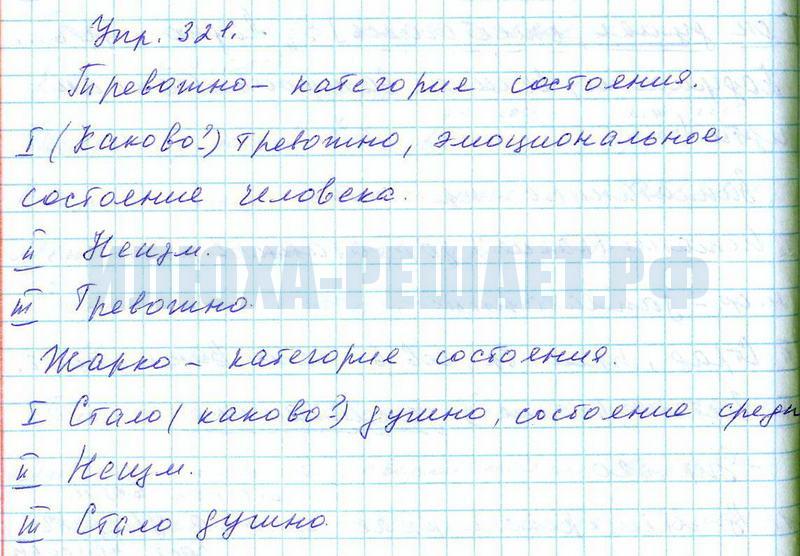 Упр. 321.
Тревожно – категория состояния.
I (Каково?) тревожно, эмоциональное
состояние человека.
II Неизм.
ИЛЮХА-РЕШАЕТ.РФ
III Тревожно.
Жарко – категория состояния.
I Стало (каково?) душно, состояние среды
II Неизм.
III Стало душно.